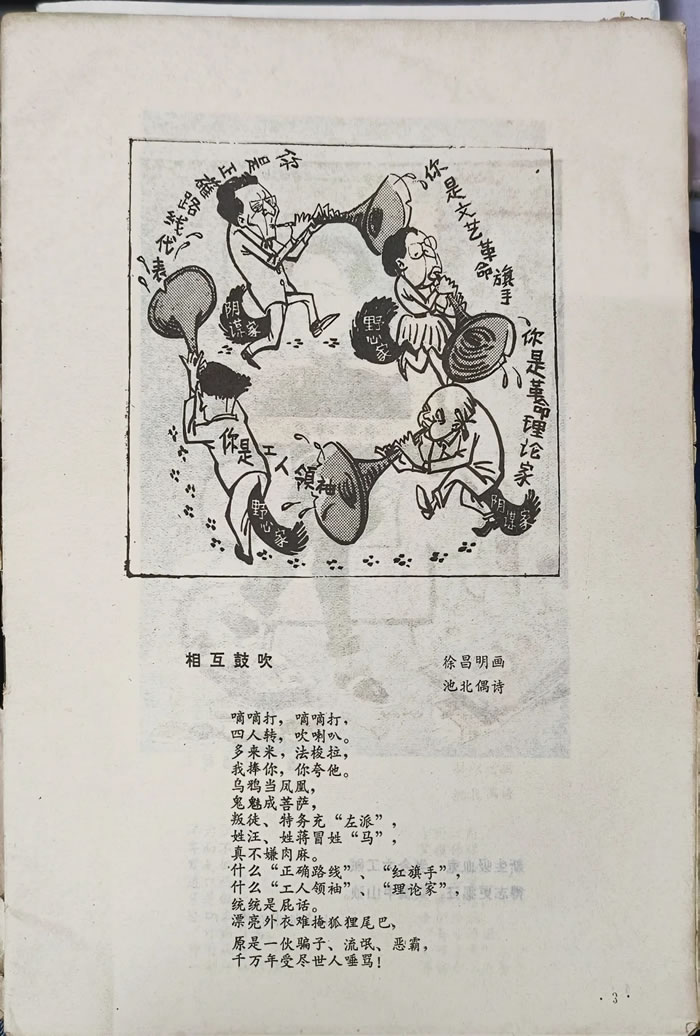 你是正确路线代表
你是文艺革命旗手
阴谋家
野心家
你是革命理论家
你是工人領袖
野心家
阴谋家
相互鼓吹
徐昌明画
池北偶诗
嘀嘀打，嘀嘀打，
四人转，吹喇叭。
多来米，法梭拉，
我捧你，你夸他。
乌鸦当凤凰，
鬼魅成菩萨，
叛徒、特务充“左派”，
姓汪、姓蒋冒姓“马”，
真不嫌肉麻。
什么“正确路线”、“红旗手”，
什么“工人领袖”　“理论家”，
统统是屁话。
漂亮外衣难掩狐狸尾巴，
原是一伙骗子、流氓、恶霸，
千万年受尽世人唾骂！
·3·